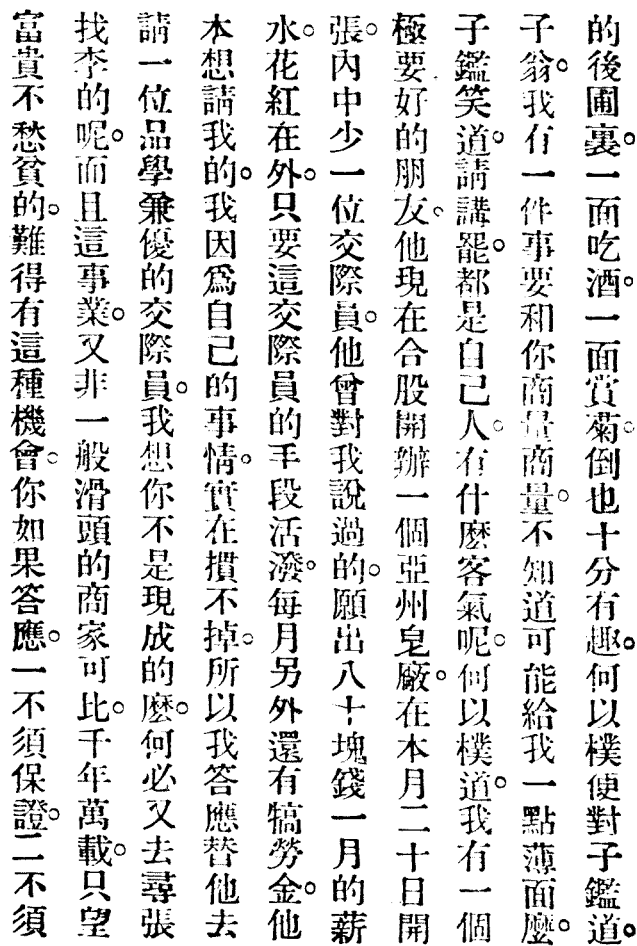 的後圃裏。一面吃酒。一面賞菊。倒也十分有趣。何以樸便對子鑑道。
子翁。我有一件事要和你商量商量。不知道可能給我一點薄面麼。
子鑑笑道。請講罷。都是自己人。有什麼客氣呢。何以樸道。我有一個
極要好的朋友。他現在合股開辦一個亞州皂廠。在本月二十日開
張。內中少一位交際員。他曾對我說過的。願出八十塊錢一月的薪
水。花紅在外。只要這交際員的手段活潑。每月另外還有犒勞金。他
本想請我的。我因爲自己的事情。實在摜不掉。所以我答應替他去
請一位品學兼優的交際員。我想你不是現成的麼。何必又去尋張
找李的呢。而且這事業。又非一般滑頭的商家可比。千年萬載。只望
富貴不愁貧的。難得有這種機會。你如果答應。一不須保證。二不須